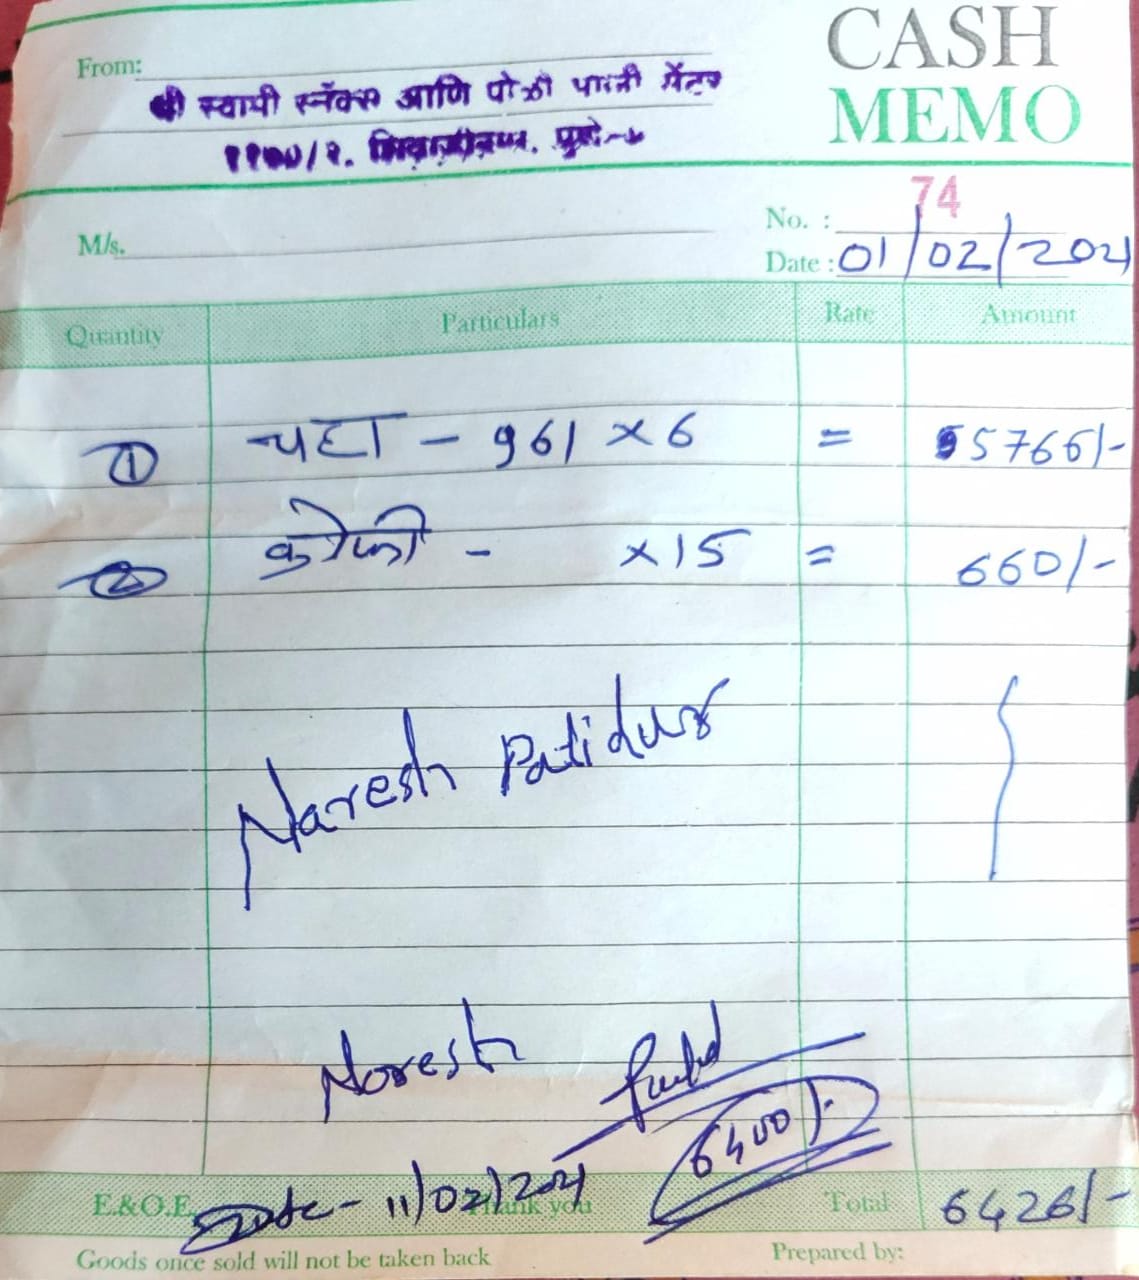 CASH
From:
MEMO
स्वामी स्नॅक्स आणि पोळी भाजी सेंटर
११००/२. शिवाजीनगर. पुणे-५
74
No. :
M/s.
Date : 01/02/2021
Quantity Particulars Rate Amount
① चहा - 961 × 6 = 5766/-
② कोफी - ×15 = 660/-
Naresh Patidar
Naresh
6400/-
E.&O.E. Date - 11/02/2021 Thank you Total 6426/-
Goods once sold will not be taken back Prepared by: